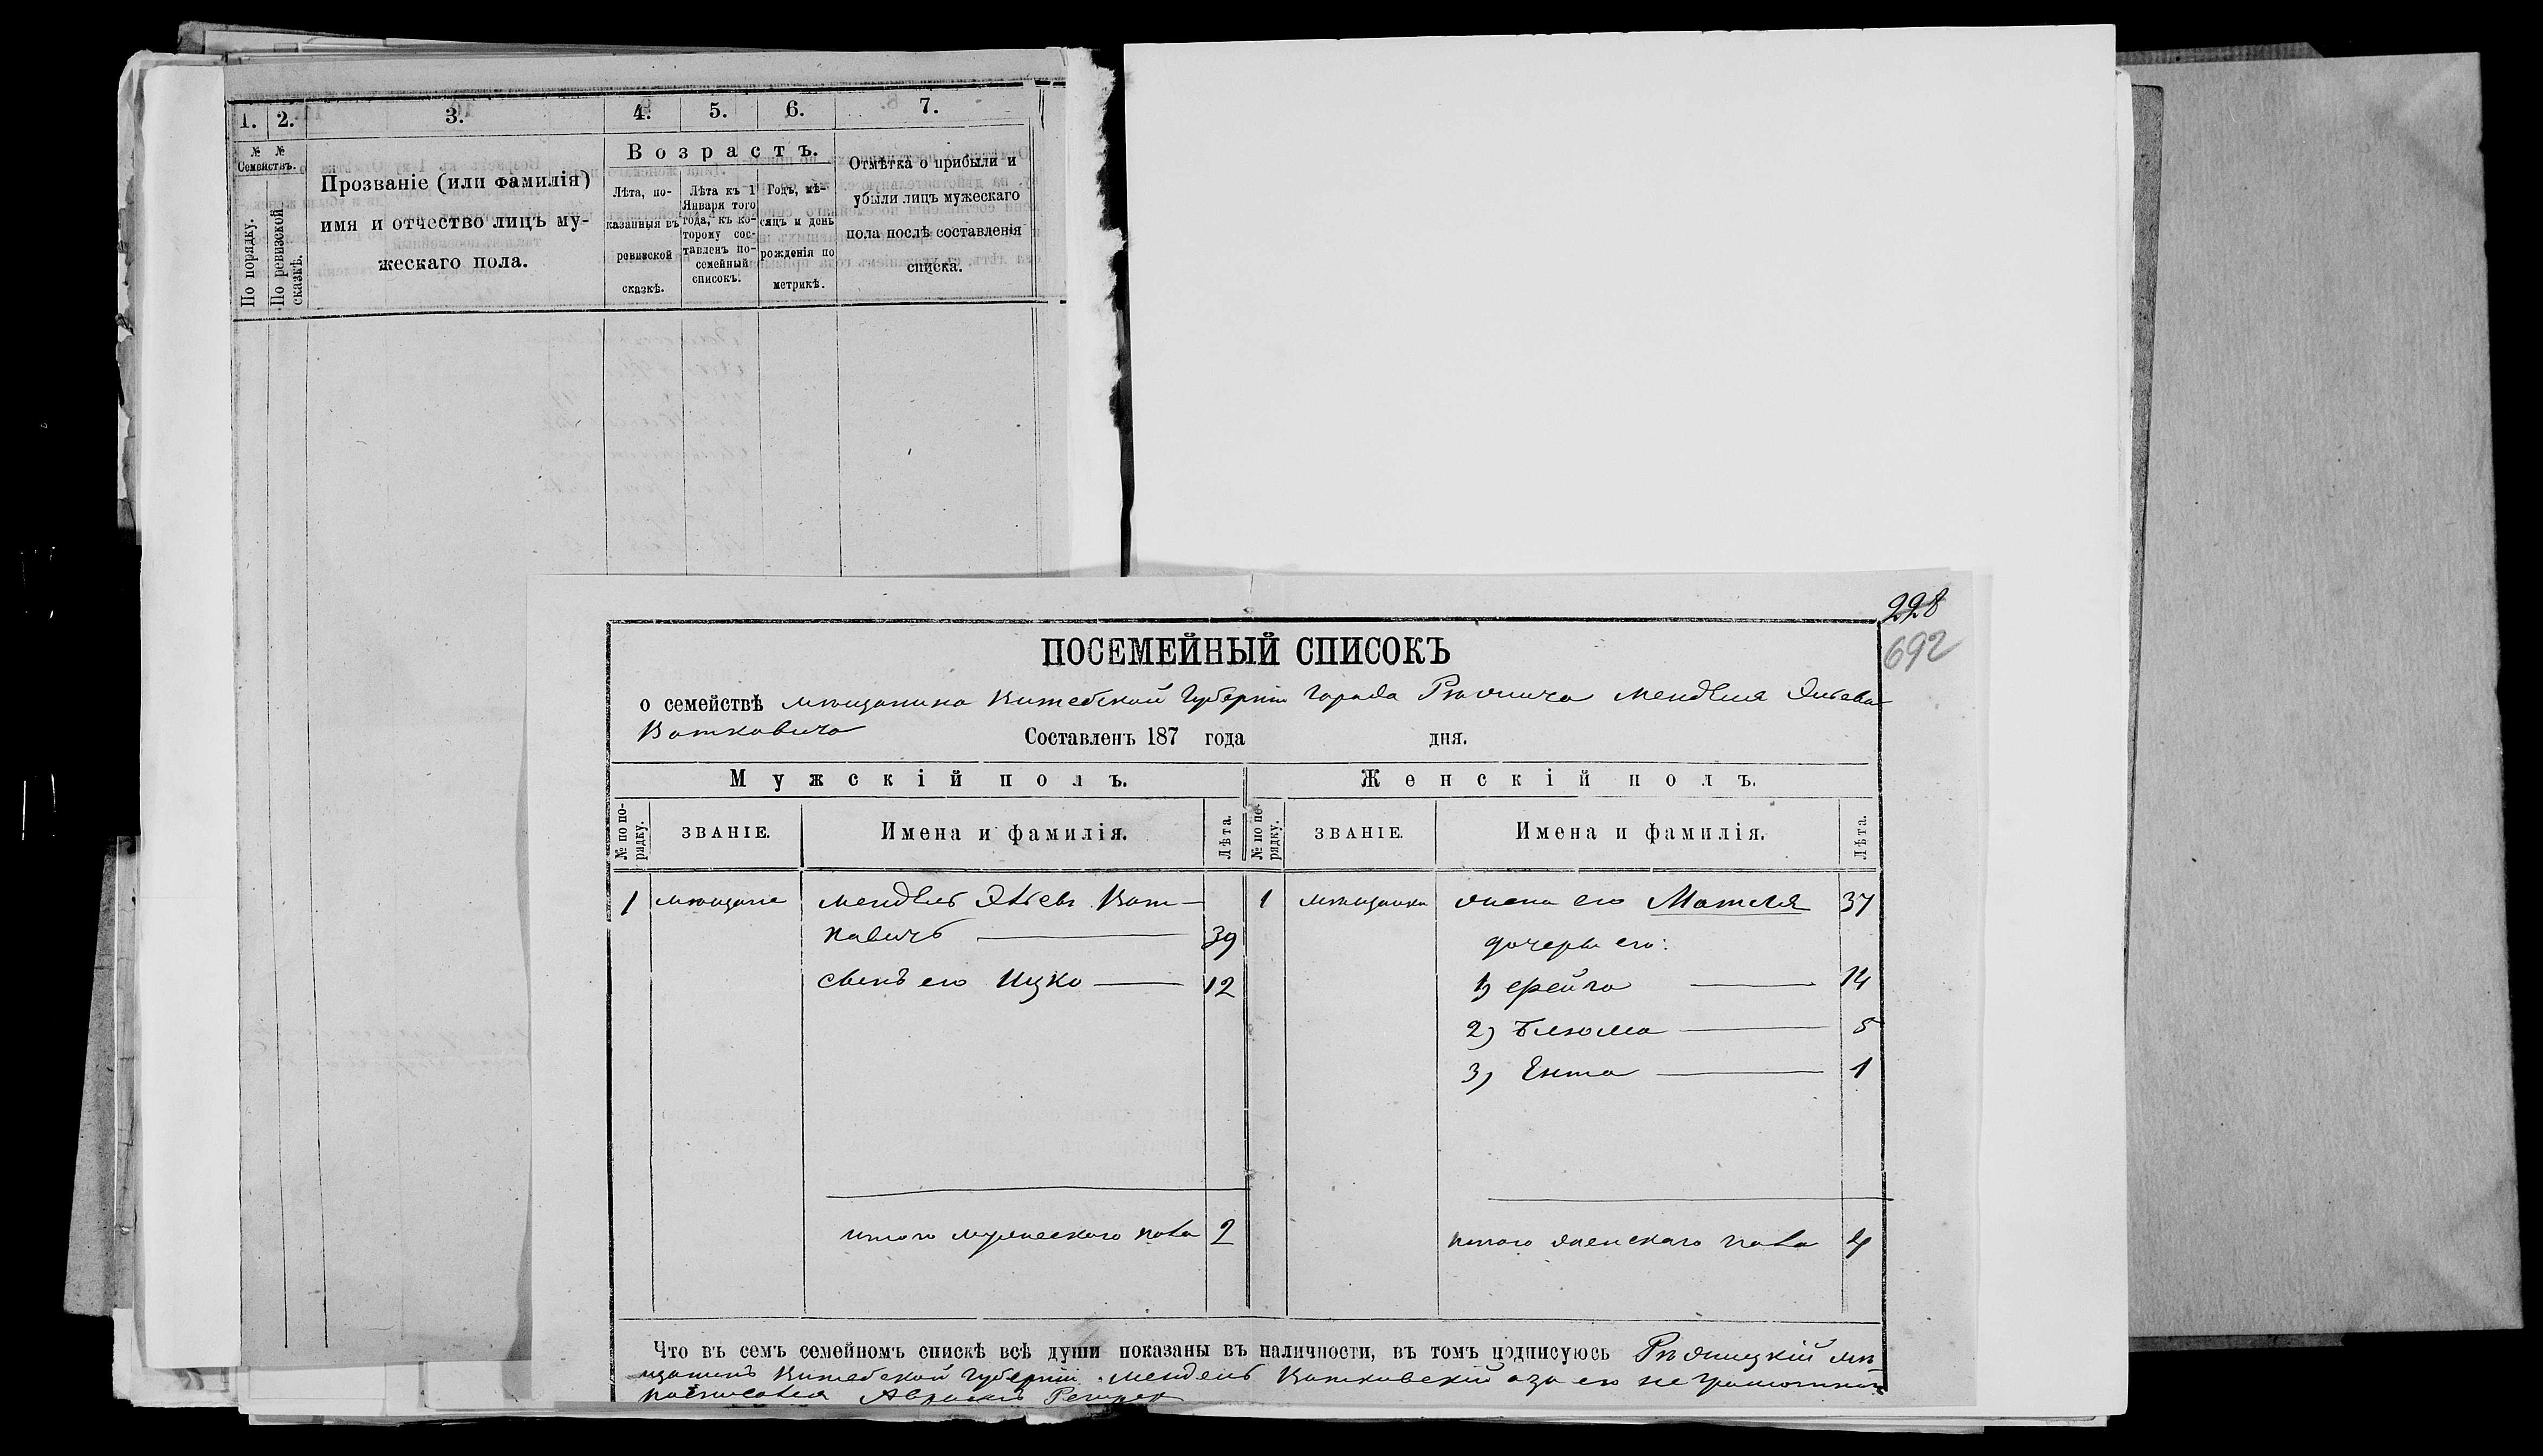 1. 2. 3. 4. 5. 6. 7.
№ № Семействъ.
По порядку.
По ревизской сказкѣ.
Прозваніе (или фамилія)
имя и отчество лицъ му-
жескаго пола.
Возрастъ.
Лѣта, по-
казанныя въ
ревизской
сказкѣ.
Лѣта къ 1
Января того
года, къ ко-
торому сос-
тавленъ по-
семейный
списокъ.
Годъ, мѣ-
сяцъ и день
рожденія по
метрикѣ.
Отмѣтка о прибыли и
убыли лицъ мужескаго
пола послѣ составленія
списка.
228
692
ПОСЕМЕЙНЫЙ СПИСОКЪ
о семействѣ мѣщанина Витебской Губерніи города Рѣжица Менделя
Вотковича Составленъ 187 года дня.
Мужскій полъ. Женскій полъ.
№ по по-
рядку.
ЗВАНІЕ. Имена и фамилія. Лѣта.
№ по по-
рядку.
ЗВАНІЕ. Имена и фамилія. Лѣта.
1 мѣщане Мендель Вот- 1 мѣщанка жена его Мотля 37
ковичъ 39 дочери его:
сынъ его Ицко 12 1) Фрейга 14
2) Блюма 5
3) Ента 1
итого мужескаго пола 2 итого женскаго пола 4
Что въ семъ семейномъ спискѣ всѣ души показаны въ наличности, въ томъ подписуюсь Рѣжицкій мѣ-
щанинъ Витебской Губерніи Мендель Вотковскій а за его неграмотный